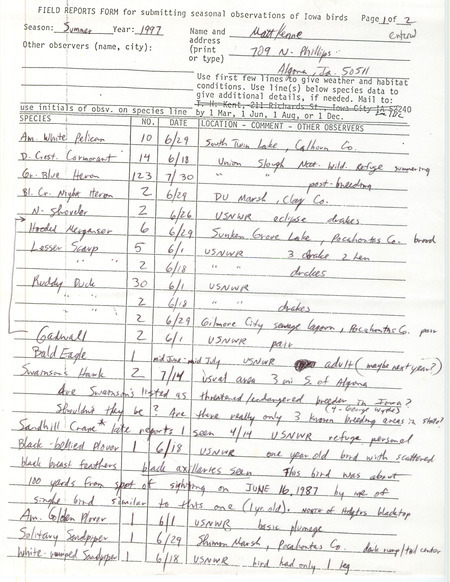 FIELD REPORTS FORM for submitting seasonal observations of Iowa birds Page 1 of 2
Season: Summer Year: 1997 Name and Matt Kenne
entered
Other observers (name, city): address 709 N. Phillips
(print
or type) Algona, Ia. 50511
Use first few lines to give weather and habitat
conditions. Use line(s) below species data to
give additional details, if needed. Mail to:
T. H. Kent, 211 Richards St., Iowa City IA 52240
use initials of obsv. on species line by 1 Mar, 1 Jun, 1 Aug, or 1 Dec.
SPECIES NO. DATE LOCATION - COMMENT - OTHER OBSERVERS
Am. White Pelican 10 6/29 South Twin Lake, Calhoun Co.
D. Crest. Cormorant 14 6/18 Union Slough Nat. Wild. Refuge summering
Gr. Blue Heron 123 7/30 " " post-breeding
Bl. Cr. Night Heron 2 6/29 DU Marsh, Clay Co.
N. Shoveler 2 6/26 USNWR eclipse drakes
Hooded Merganser 6 6/29 Sunken Grove Lake, Pocahontas Co. brood
Lesser Scaup 5 6/1 USNWR 3 drake 2 hen
2 6/18 " " drakes
Ruddy Duck 30 6/1 USNWR
" " 2 6/18 " drakes
" " 2 6/29 Gilmore City sewage lagoon, Pocahontas Co. pair
Gadwall 2 6/1 USNWR pair
Bald Eagle 1 mid June-mid July USNWR adult (maybe next year?)
Swainson's Hawk 2 7/14 usual area 3 mi S. of Algona
Are Swainson's listed as threatened/endangered breeder in Iowa?
Shouldn't they be? Are there really only 3 known breeding areas in state?
Sandhill Crane * late reports 1 seen 4/14 USNWR refuge personel
Black-bellied Plover 1 6/18 USNWR one year old bird with scattered
black breast feathers black axillaries seen This bird was about
100 yards from spot of sighting on JUNE 16, 1987 by me of
single bird similar to this one (1 yr. old). NORTH of blacktop
Am. Golden Plover 1 6/1 USNWR basic plumage
Solitary Sandpiper 1 6/29 Shimon Marsh, Pocahontas Co. dark rump/tail center
White-rumped Sandpiper 1 6/18 USNWR bird had only 1 leg